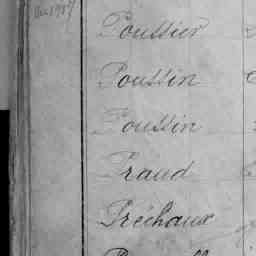 Poussier
Poussin
Poussin
Praud
Préchaux